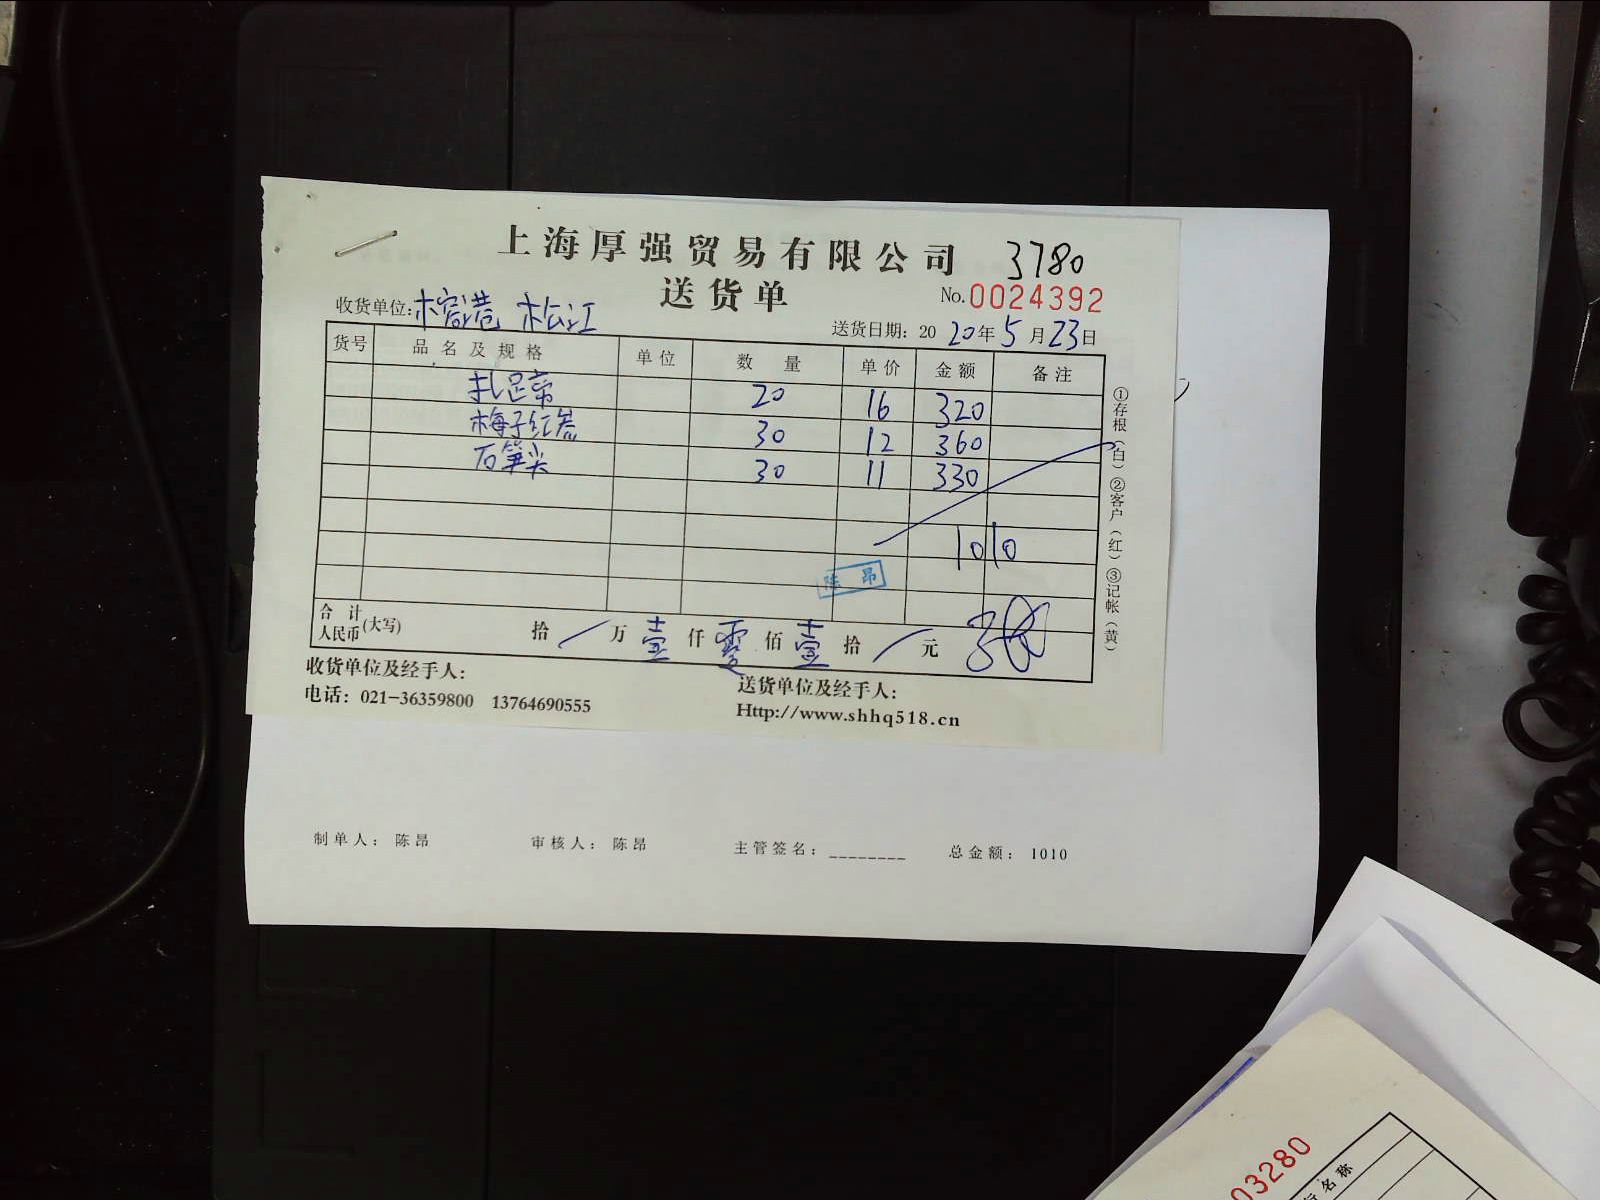 上海厚强贸易有限公司 3780
送货单 No.0024392
收货单位: 榕港 松江
送货日期: 2020年5月23日
货号 品名及规格 单位 数量 单价 金额 备注
扎足蒂 20 16 320
梅子红卷 30 12 360
石笋尖 30 11 330
1010
陈昂
合计人民币(大写) 拾 / 万 壹 仟 零 佰 壹 拾 / 元
①存根(白)②客户(红)③记帐(黄)
收货单位及经手人:
送货单位及经手人:
电话: 021-36359800 13764690555
Http://www.shhq518.cn
制单人: 陈昂 审核人: 陈昂 主管签名: ________ 总金额: 1010
03280
名称